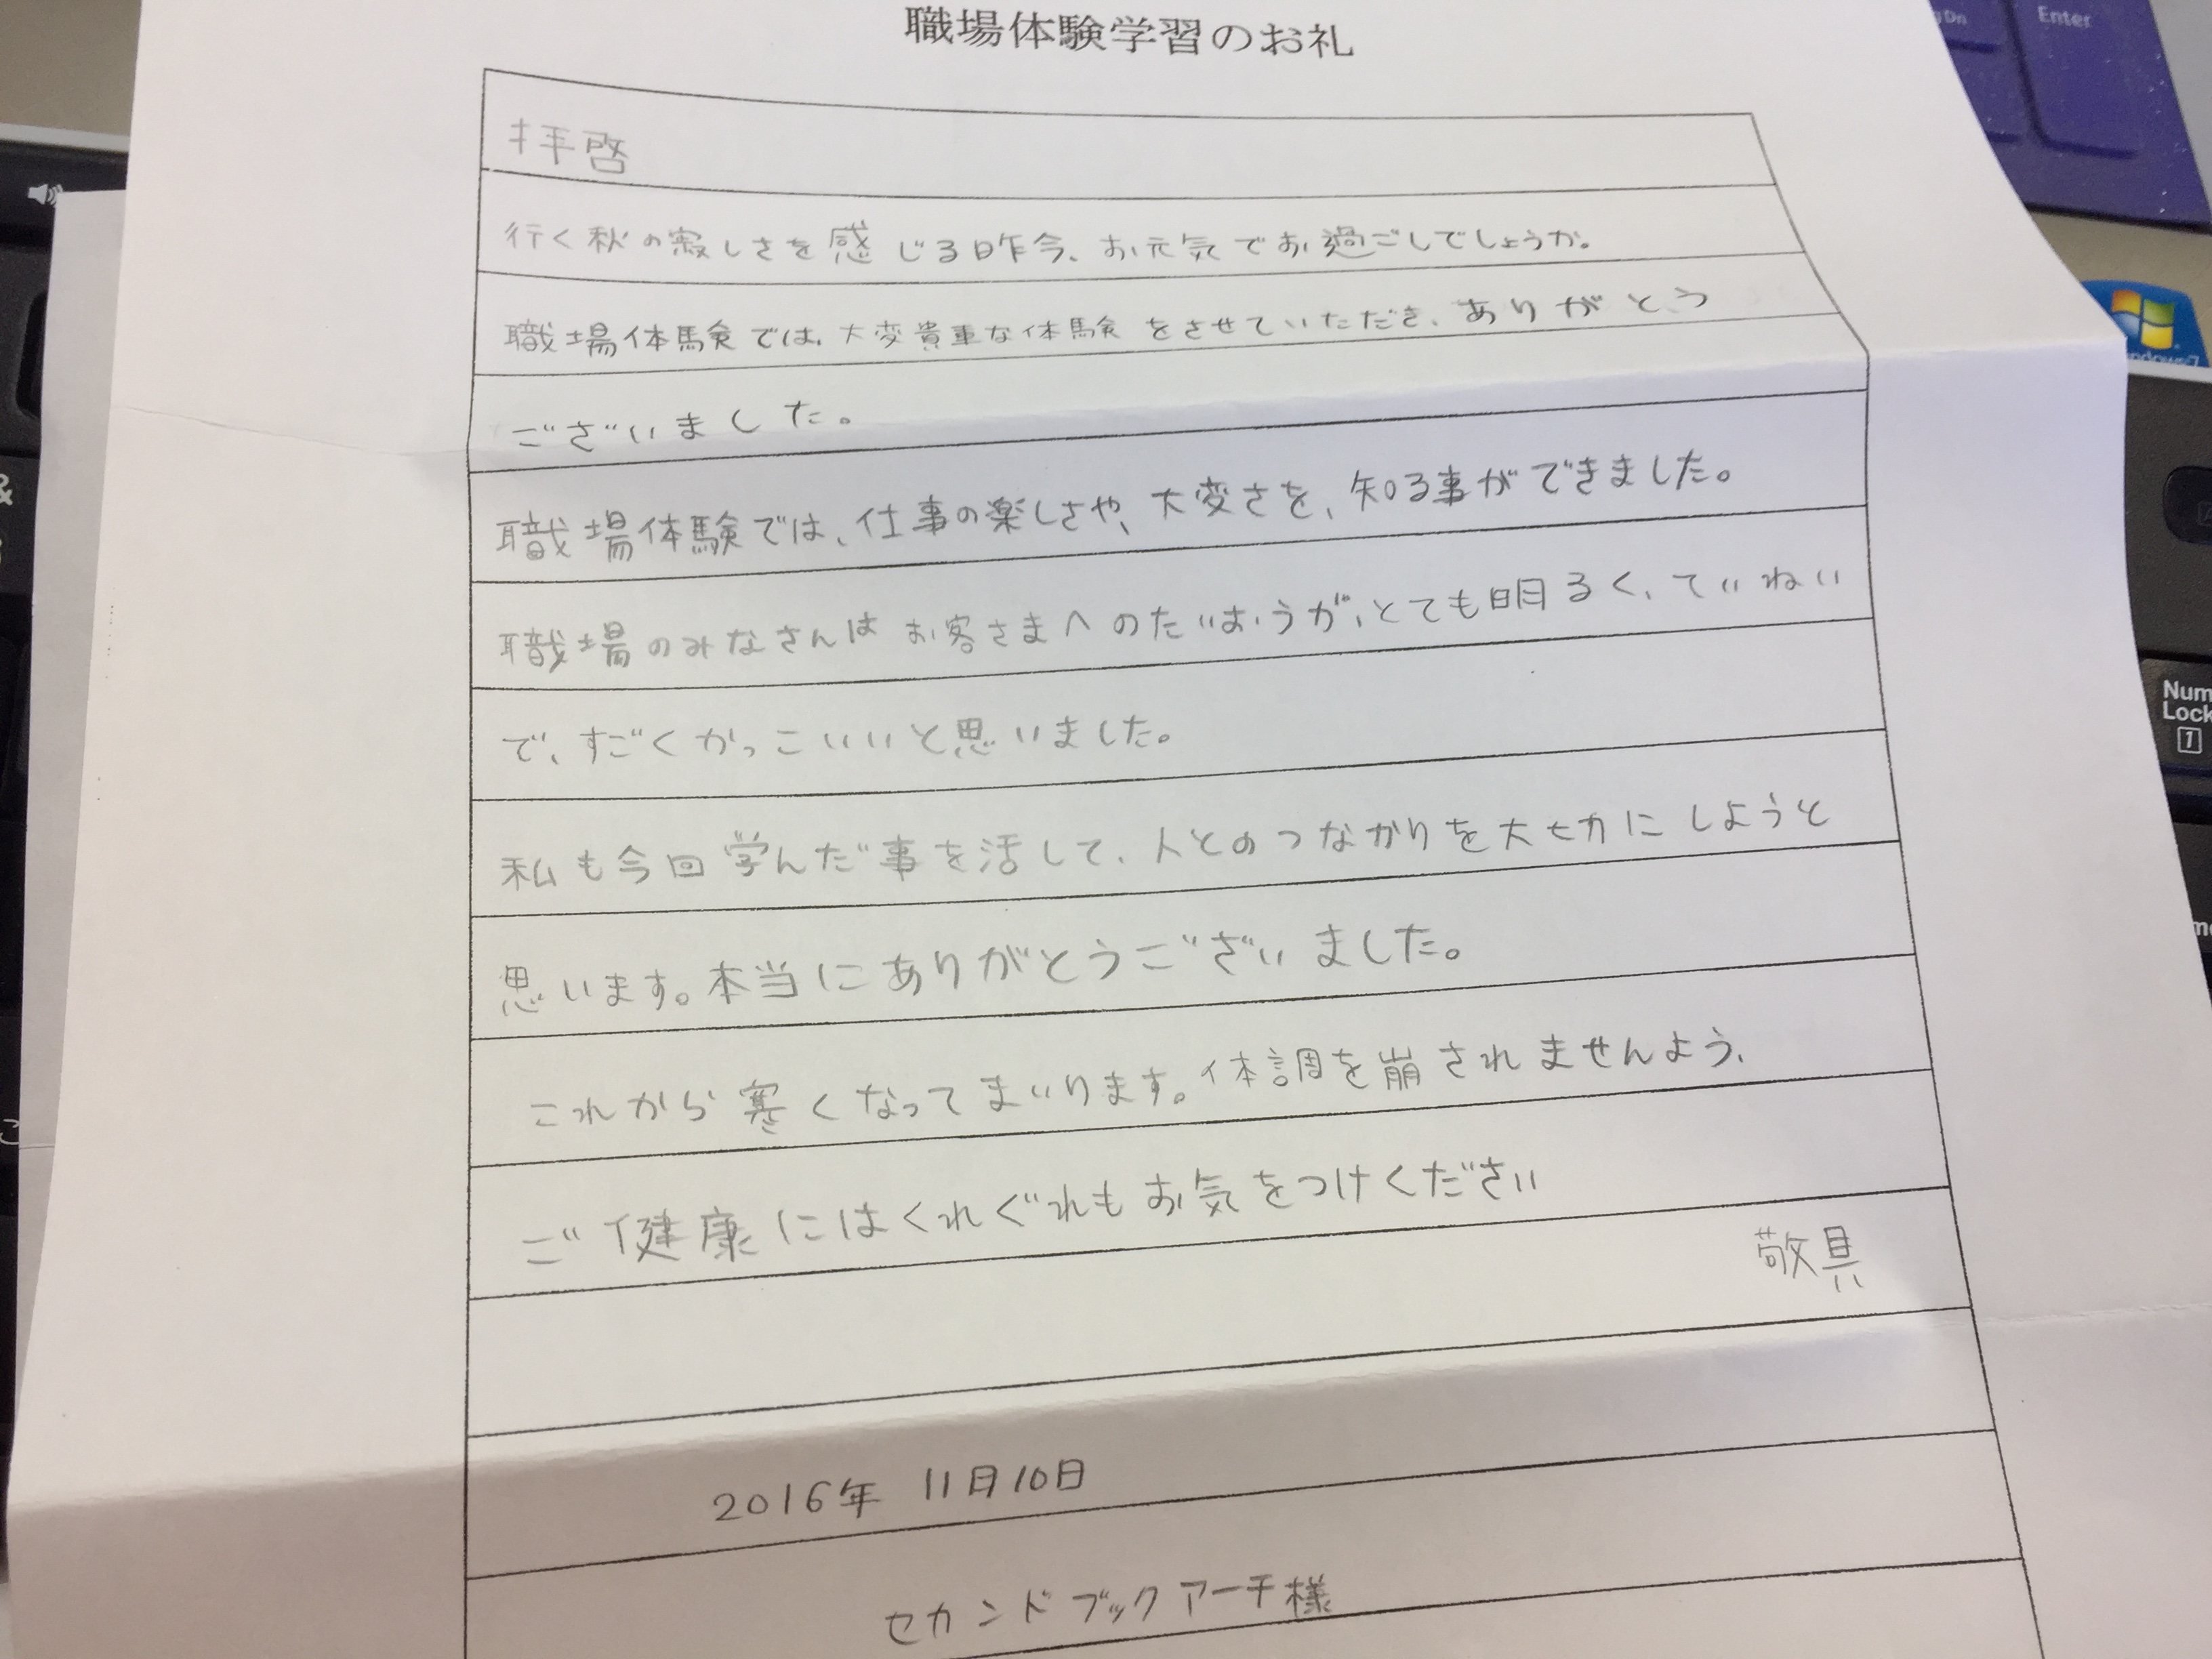 職場体験学習のお礼
拝啓
行く秋の寂しさを感じる昨今、お元気でお過ごしでしょうか。
職場体験では、大変貴重な体験をさせていただき、ありがとう
ございました。
職場体験では、仕事の楽しさや、大変さを、知る事ができました。
職場のみなさんはお客さまへのたいおうが、とても明るく、ていねい
で、すごくかっこいいいと思いました。
私も今回学んだ事を活して、人とのつながりを大切にしようと
思います。本当にありがとうございました。
これから寒くなってまいります。体調を崩されませんよう、
ご健康にはくれぐれもお気をつけください
敬具
2016年 11月10日
セカンドブックアーチ様
Enter
Num
Lock
1
&